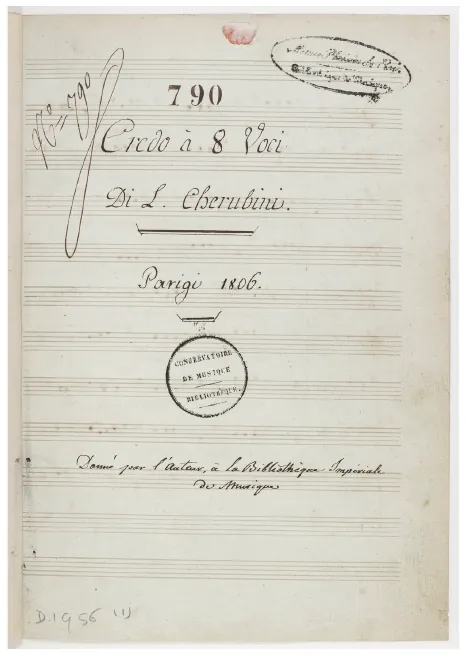 No = 790
790
Credo à 8 Voci
Di L. Cherubini.
Parigi 1806.
CONSERVATOIRE
DE MUSIQUE
BIBLIOTHÈQUE.
Donné par l'Auteur, à la Bibliothèque Impériale
de Musique
D.1956 (1)